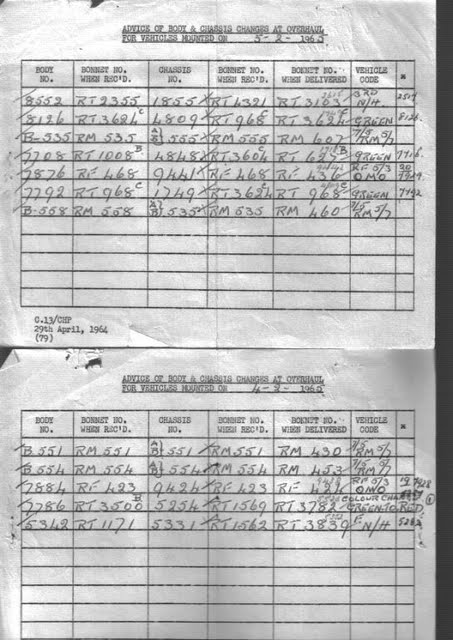 ADVICE OF BODY & CHASSIS CHANGES AT OVERHAUL
FOR VEHICLES MOUNTED ON 5-2-1965
BODY NO. BONNET NO. WHEN REC'D. CHASSIS NO. BONNET NO. BONNET NO. WHEN DELIVERED VEHICLE CODE *
8552 RT 2355 1855 RT 4321 RT 3103 3RD N/H.
8126 RT 3624 C 4809 RT 968 C RT 3624 GREEN 8126
B-535 RM 535 555 RM 555 RM 607 7/5 RM 5/7
7708 RT 1008 B 4848 RT 3604 C RT 627 GREEN
7876 RF 468 9441 RF 468 RF 436 RF 5/3 OMO
7792 RT 968 C 1749 RT 3624 C RT 968 GREEN 7792
B-558 RM 558 535 RM 535 RM 460 7/5 RM 5/7
C.13/CHP
29th April, 1964
(79)
ADVICE OF BODY & CHASSIS CHANGES AT OVERHAUL
FOR VEHICLES MOUNTED ON 4-2-1965
BODY NO. BONNET NO. WHEN REC'D. CHASSIS NO. BONNET NO. BONNET NO. WHEN DELIVERED VEHICLE CODE *
B.551 RM 551 551 RM.551 RM 430 7/5 RM 5/7
B.554 RM 554 554 RM 554 RM 453 7/5 RM 5/7
7884 RF 423 9424 RF 423 RF 429 RF 5/3 OMO
7786 RT 3500 B 5254 RT 1569 RT 3782 GREEN TO RED
5342 RT 1171 5331 RT 1562 RT 3839 N/H